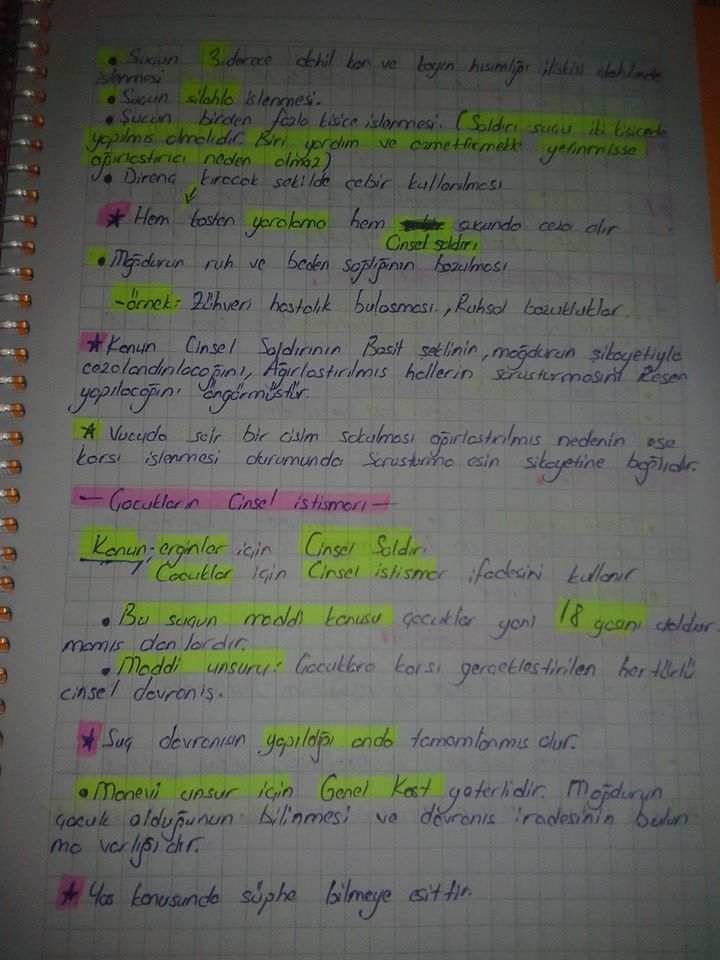 • Suçun 3. derece dahil kan ve kayın hısımlığı ilişkisi dahilinde
işlenmesi
• Suçun silahla işlenmesi.
• Suçun birden fazla kişice işlenmesi. (Saldırı suçu iki kişicede
yapılmış olmalıdır. Biri yardım ve azmettirmekle yetinmişse
ağırlaştırıcı neden olmaz)
• Direnç kıracak şekilde cebir kullanılması
★ Hem kasten yaralama hem açıında ceza alır
Cinsel saldırı
• Mağdurun ruh ve beden sağlığının bozulması
- örnek: Zührevi hastalık bulaşması., Ruhsal bozukluklar.
★ Kanun Cinsel Saldırının Basit şeklinin, mağdurun şikayetiyle
cezalandırılacağını, Ağırlaştırılmış hallerin soruşturmasını Resen
yapılacağını öngörmüştür.
★ Vucuda sair bir cisim sokulması ağırlaştırılmış nedenin eşe
karsı işlenmesi durumunda Soruşturma eşin şikayetine bağlıdır.
— Çocukların Cinsel istismarı —
Kanun; erginler için Cinsel Saldırı
Çocuklar için Cinsel istismar ifadesini kullanır
• Bu suçun maddi konusu çocuklar yani 18 yaşını doldur-
mamış olanlardır.
• Maddi unsuru: Çocuklara karsı gerçekleştirilen her türlü
cinsel davranış.
★ Suç davranışın yapıldığı anda tamamlanmış olur.
• Manevi unsur için Genel Kast yeterlidir. Mağdurun
çocuk olduğunun bilinmesi ve davranış iradesinin bulun
ma varlığıdır.
★ Yas konusunda şüphe bilmeye eşittir.